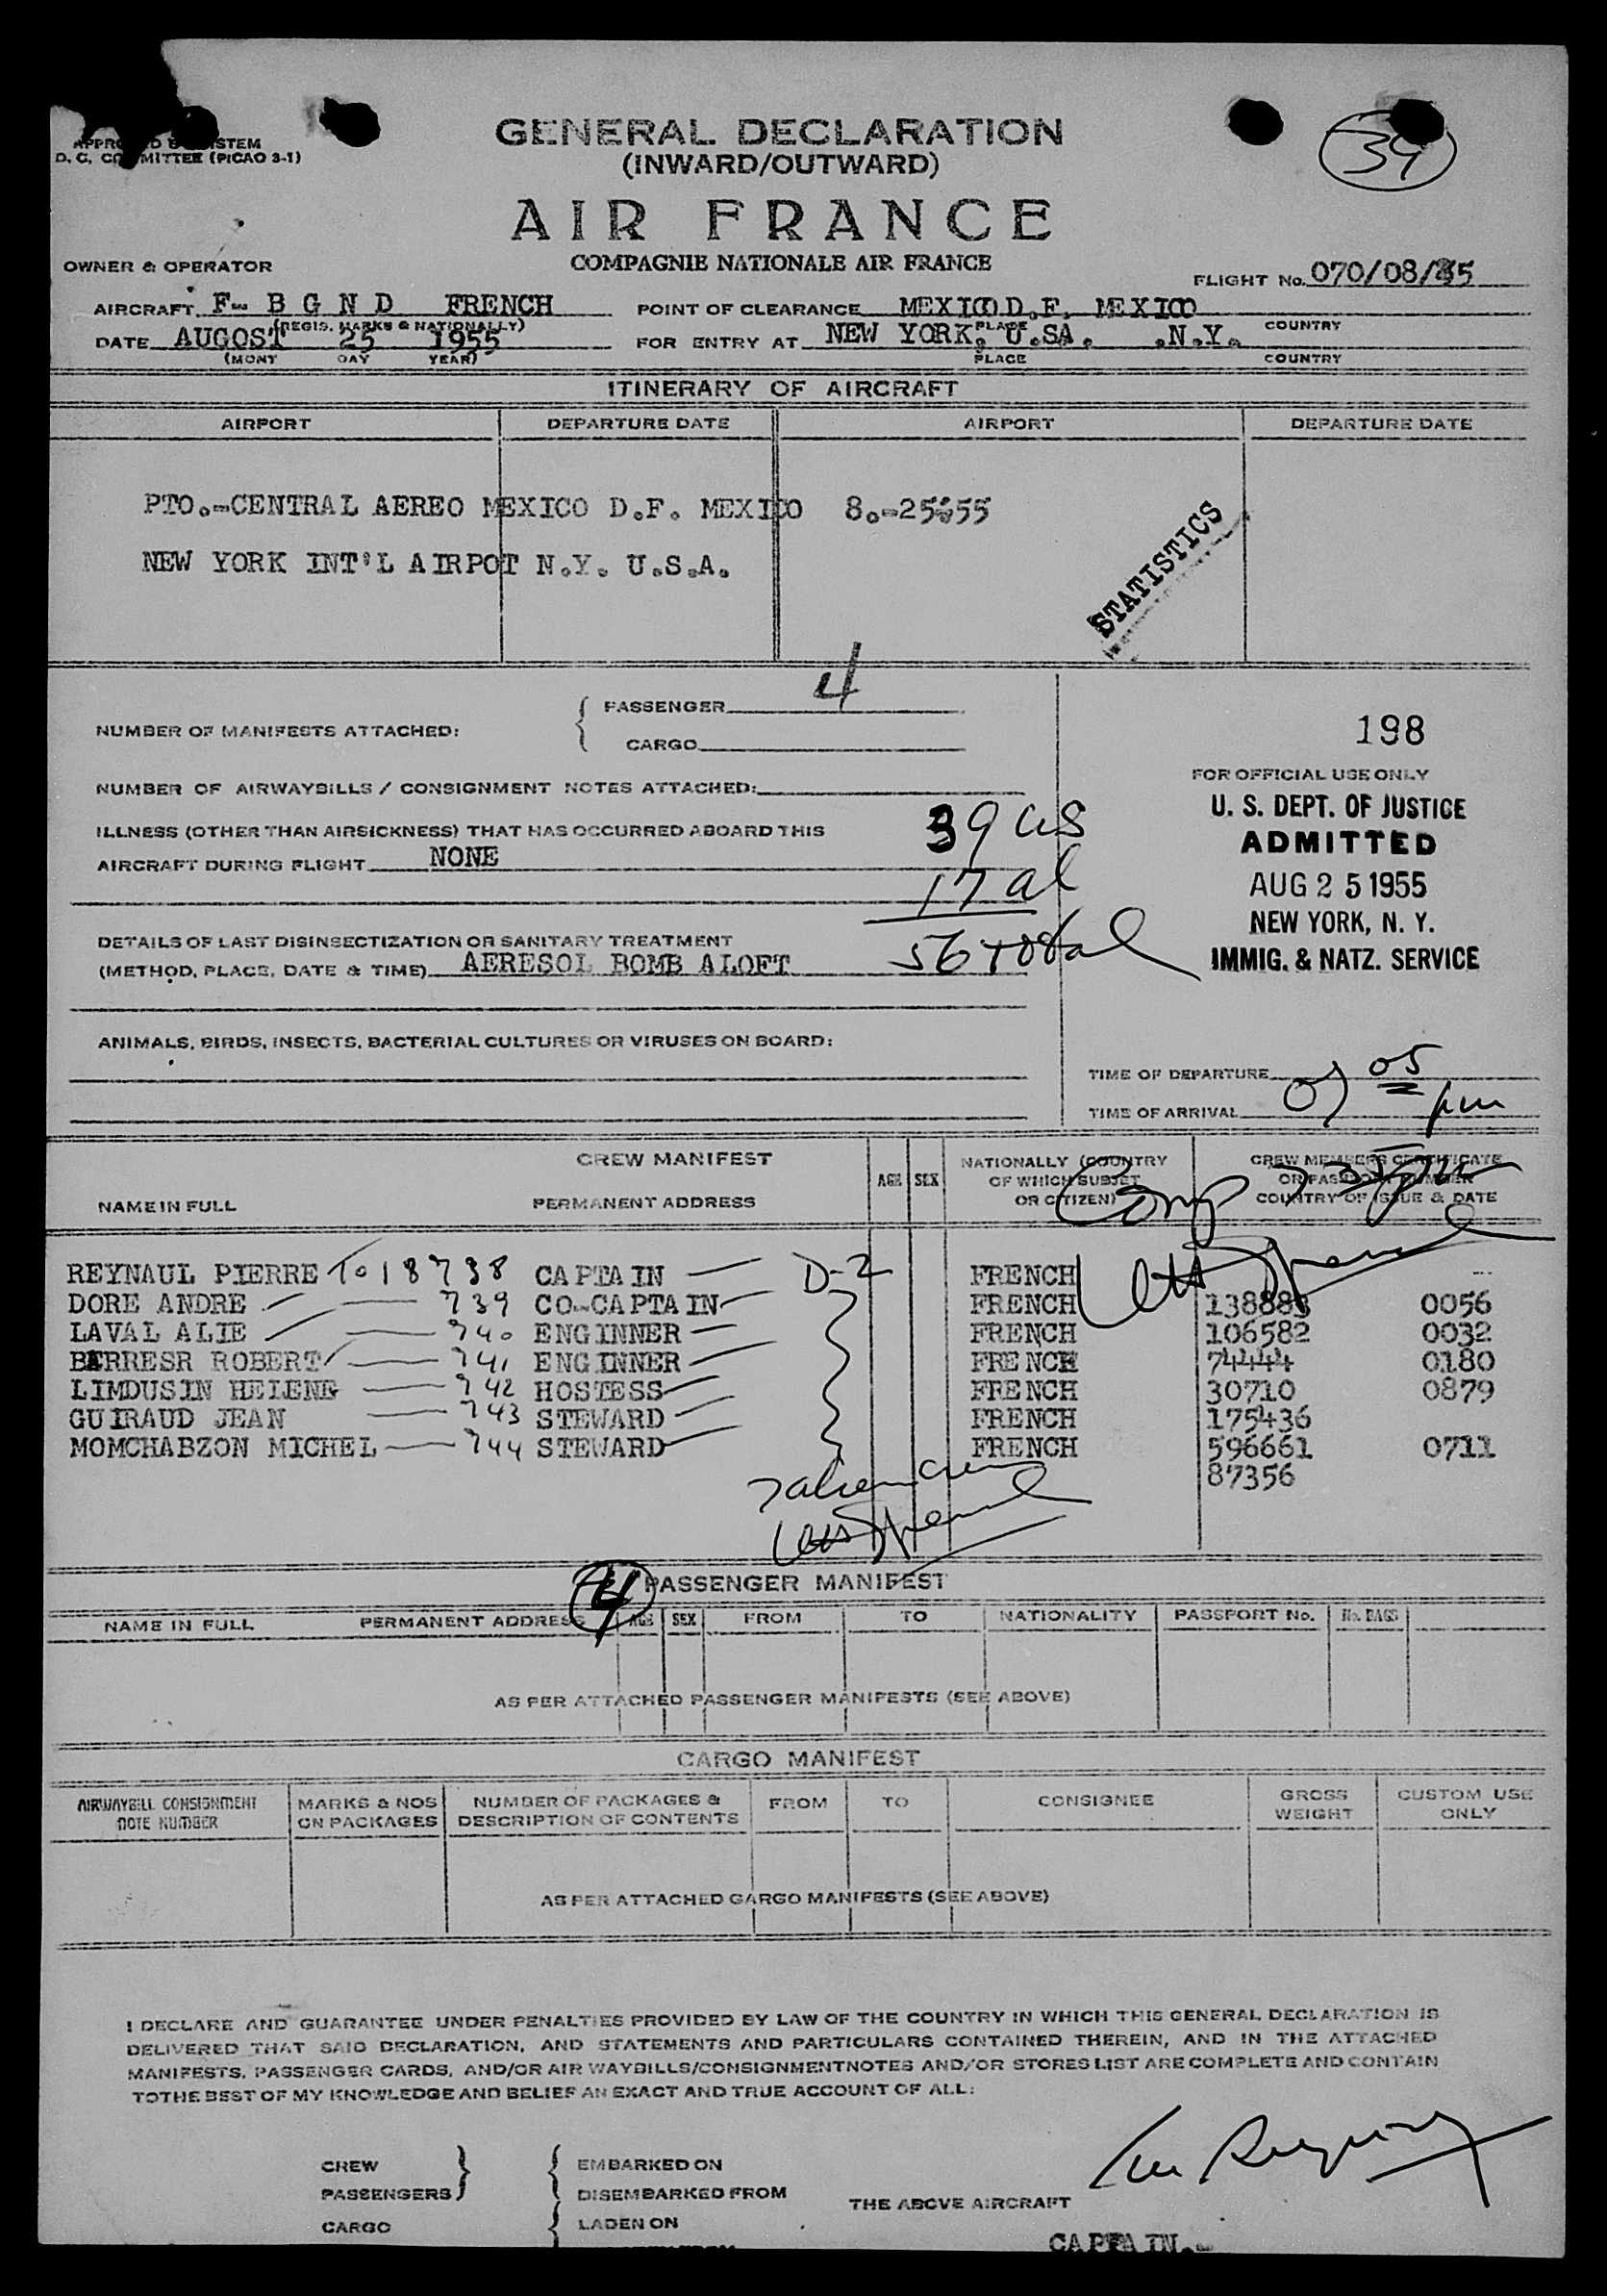 GENERAL DECLARATION
(INWARD/OUTWARD)
39
D. C. COMMITTEE (PICAO 3-1)
AIR FRANCE
COMPAGNIE NATIONALE AIR FRANCE
OWNER & OPERATOR
FLIGHT No. 070/08/
AIRCRAFT F- B G N D FRENCH POINT OF CLEARANCE MEXICO D.F. MEXICO
(REGIS. MARKS & NATIONALLY) PLACE COUNTRY
DATE AUGOST 25 1955 FOR ENTRY AT NEW YORK. U.SA. .N.Y.
(MONT DAY YEAR) PLACE COUNTRY
ITINERARY OF AIRCRAFT
AIRPORT DEPARTURE DATE AIRPORT DEPARTURE DATE
PTO.-CENTRAL AEREO MEXICO D.F. MEXICO 8.-25-55
NEW YORK INT'L AIRPOT N.Y. U.S.A.
STATISTICS
NUMBER OF MANIFESTS ATTACHED: PASSENGER 4
CARGO
198
NUMBER OF AIRWAYBILLS / CONSIGNMENT NOTES ATTACHED:
FOR OFFICIAL USE ONLY
U. S. DEPT. OF JUSTICE
ADMITTED
AUG 25 1955
NEW YORK, N. Y.
IMMIG. & NATZ. SERVICE
ILLNESS (OTHER THAN AIRSICKNESS) THAT HAS OCCURRED ABOARD THIS
AIRCRAFT DURING FLIGHT NONE
39 us
17 al
56 total
DETAILS OF LAST DISINSECTIZATION OR SANITARY TREATMENT
(METHOD, PLACE, DATE & TIME) AERESOL BOMB ALOFT
ANIMALS, BIRDS, INSECTS, BACTERIAL CULTURES OR VIRUSES ON BOARD:
TIME OF DEPARTURE
TIME OF ARRIVAL 07 05 pm
CREW MANIFEST
NAME IN FULL PERMANENT ADDRESS AGE SEX NATIONALLY (COUNTRY OF WHICH SUBJET OR CITIZEN) CREW MEMBERS CERTIFICATE OR PASSPORT NUMBER COUNTRY OF ISSUE & DATE
REYNAUL PIERRE To 18738 CAPTAIN D-2 FRENCH
DORE ANDRE 739 CO-CAPTAIN FRENCH 0056
LAVAL ALIE 740 ENGINNER FRENCH 106582 0032
BARRESR ROBERT 741 ENGINNER FRENCH 74444 0180
LIMDUSIN HELENE 742 HOSTESS FRENCH 30710 0879
GUIRAUD JEAN 743 STEWARD FRENCH 175436
MOMCHABZON MICHEL 744 STEWARD FRENCH 596661 0711
87356
4 PASSENGER MANIFEST
NAME IN FULL PERMANENT ADDRESS AGE SEX FROM TO NATIONALITY PASSPORT No. No. BAGS
AS PER ATTACHED PASSENGER MANIFESTS (SEE ABOVE)
CARGO MANIFEST
AIRWAYBILL CONSIGNMENT NOTE NUMBER MARKS & NOS ON PACKAGES NUMBER OF PACKAGES & DESCRIPTION OF CONTENTS FROM TO CONSIGNEE GROSS WEIGHT CUSTOM USE ONLY
AS PER ATTACHED CARGO MANIFESTS (SEE ABOVE)
I DECLARE AND GUARANTEE UNDER PENALTIES PROVIDED BY LAW OF THE COUNTRY IN WHICH THIS GENERAL DECLARATION IS
DELIVERED THAT SAID DECLARATION, AND STATEMENTS AND PARTICULARS CONTAINED THEREIN, AND IN THE ATTACHED
MANIFESTS, PASSENGER CARDS, AND/OR AIR WAYBILLS/CONSIGNMENTNOTES AND/OR STORES LIST ARE COMPLETE AND CONTAIN
TOTHE BEST OF MY KNOWLEDGE AND BELIEF AN EXACT AND TRUE ACCOUNT OF ALL:
CREW EMBARKED ON
PASSENGERS DISEMBARKED FROM
THE ABOVE AIRCRAFT
CARGO LADEN ON
CAPTAIN.-